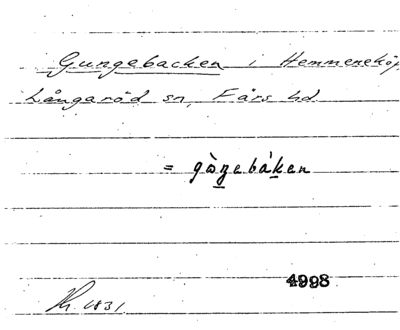 Gungebacken i Hemmeneköp
Långaröd sn, Färs hd
= gòŋebáken
4998
1831